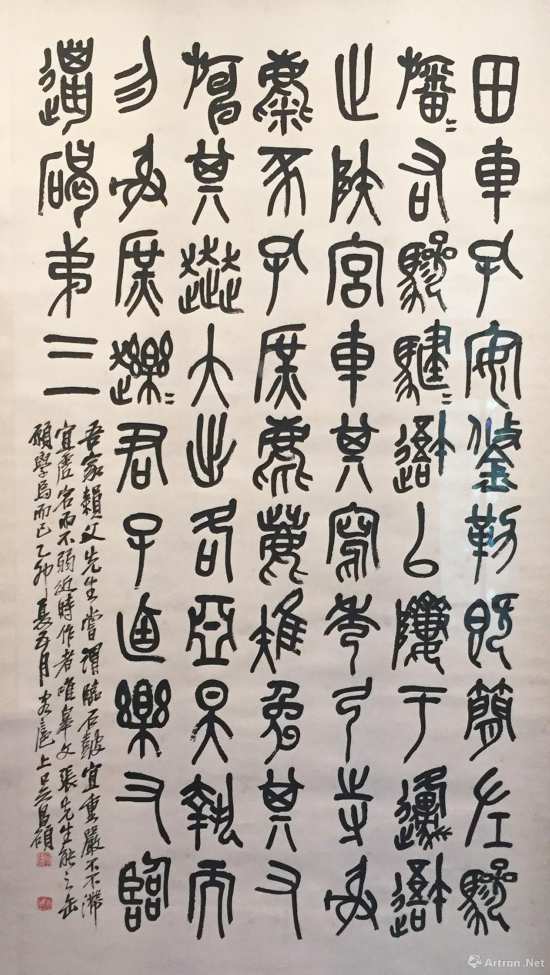 田車孔安鋚勒既簡左驂
旛=右驂騝=避以隮于邍避
止陕宮車其寫秀弓寺射
麋豕孔庶麀鹿雉兔其又
旃其䟫大出各亞昊執而
勿射庶䟏=君子卣樂又臨
邍碣弟三
吾家賴父先生嘗謂臨石鼓宜重嚴而不滯
宜虛宕而不弱近時作者唯皋文張先生能之缶
願學焉而已乙卯夏五月安吉吳昌碩
Artron.Net